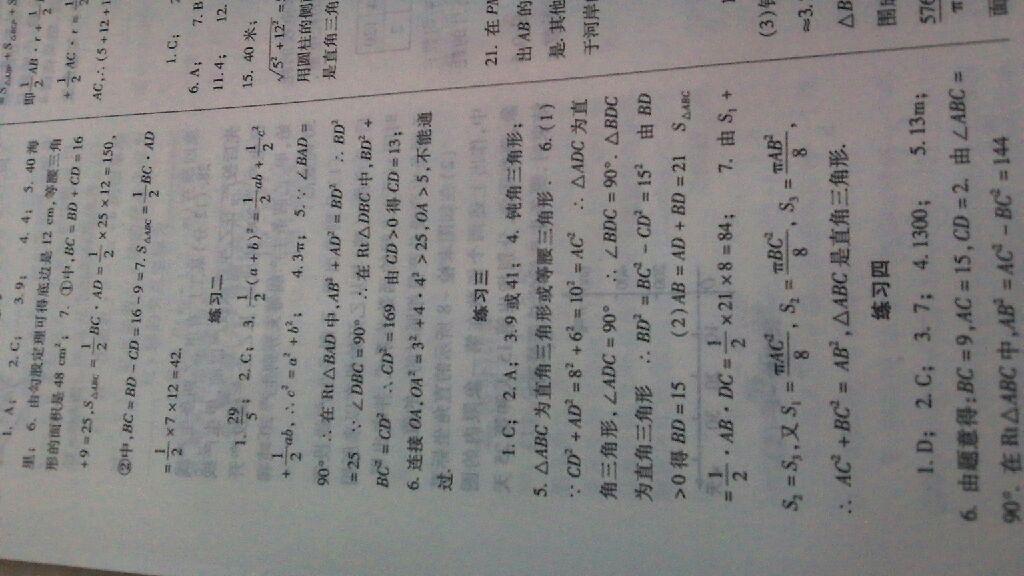 1. A; 2. C; 3. 9; 4. 4; 5. 40 海
里; 6. 由勾股定理可得底边是 12 cm,等腰三角
形的面积是 48 cm²; 7. ①中,BC = BD + CD = 16
+ 9 = 25, S△ABC = 1/2 BC · AD = 1/2 × 25 × 12 = 150,
②中,BC = BD − CD = 16 − 9 = 7. S△ABC = 1/2 BC · AD
= 1/2 × 7 × 12 = 42.
练习二
1. 29/5; 2. C; 3. 1/2(a + b)² = 1/2 ab + 1/2 c²
+ 1/2 ab, ∴ c² = a² + b²; 4. 3π; 5. ∵ ∠BAD =
90° ∴ 在 Rt△BAD 中, AB² + AD² = BD² ∴ BD²
= 25 ∵ ∠DBC = 90° ∴ 在 Rt△DBC 中, BD² +
BC² = CD² ∴ CD² = 169 由 CD > 0 得 CD = 13;
6. 连接 OA, OA² = 3² + 4 · 4² > 25, OA > 5, 不能通
过.
练习三
1. C; 2. A; 3. 9 或 41; 4. 钝角三角形;
5. △ABC 为直角三角形或等腰三角形. 6. (1)
∵ CD² + AD² = 8² + 6² = 10² = AC² ∴ △ADC 为直
角三角形, ∠ADC = 90° ∴ ∠BDC = 90°. △BDC
为直角三角形 ∴ BD² = BC² − CD² = 15² 由 BD
> 0 得 BD = 15 (2) AB = AD + BD = 21 S△ABC
= 1/2 · AB · DC = 1/2 × 21 × 8 = 84; 7. 由 S₁ +
S₂ = S₃, 又 S₁ = πAC²/8, S₂ = πBC²/8, S₃ = πAB²/8,
∴ AC² + BC² = AB², △ABC 是直角三角形.
练习四
1. D; 2. C; 3. 7; 4. 1300; 5. 13m;
6. 由题意得: BC = 9, AC = 15, CD = 2. 由 ∠ABC =
90°. 在 Rt△ABC 中, AB² = AC² − BC² = 144
即 1/2 AB · r +
+ 1/2 AC · r =
AC, ∴ (5 + 12 + 1
1. C;
6. A; 7. B
11. 4; 12.
15. 40 米;
√5² + 12² =
用圆柱的侧
是直角三角
21. 在
出 AB 的
是. 其他
于河岸
(3)
≈ 3.
△B
围成
576
π
面